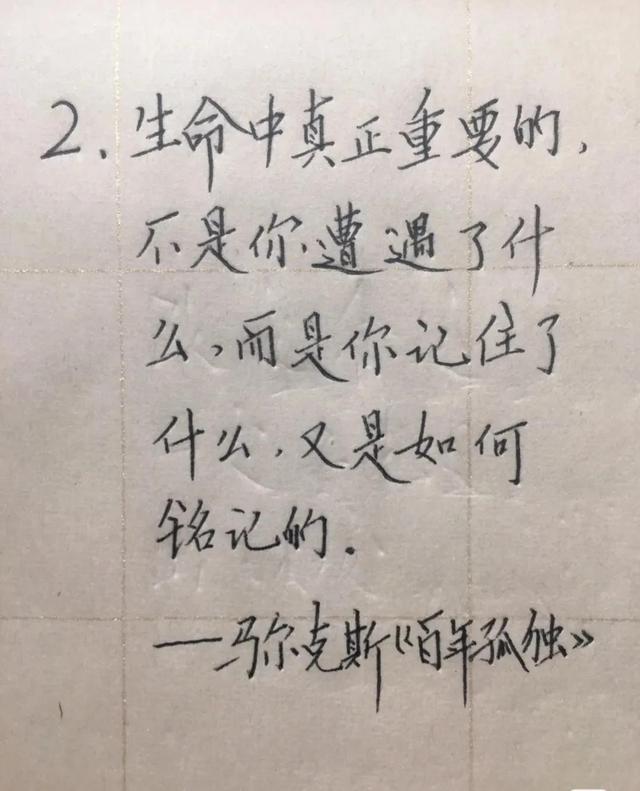 2.生命中真正重要的,
不是你遭遇了什
么,而是你记住了
什么,又是如何
铭记的.
——马尔克斯《百年孤独》